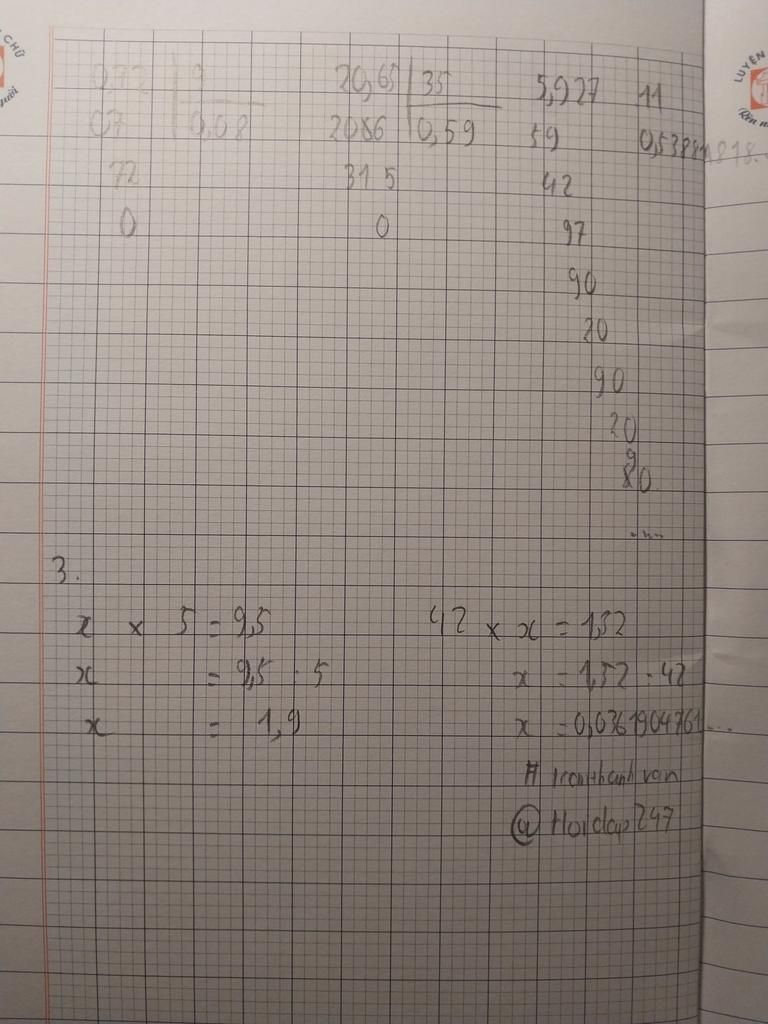 0,72 9
07 0,08
72
0
20,65 35
2086 0,59
315
0
5,927 11
59 0,53881818...
42
97
90
20
90
20
9
80
....
3.
x × 5 = 9,5
x = 9,5 : 5
x = 1,9
42 × x = 1,52
x = 1,52 : 42
x = 0,0361904761...
@Hoidap247
LUYỆN
CHỮ